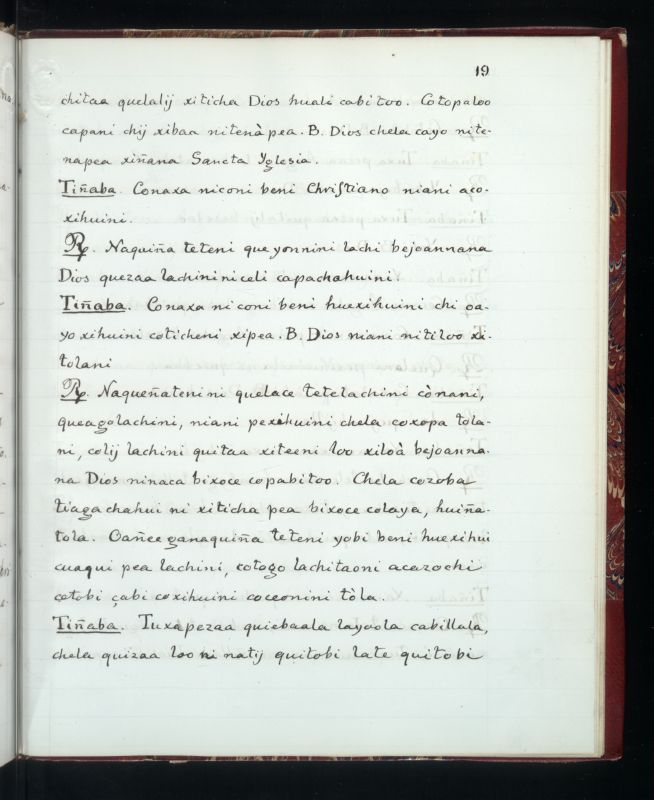 19
chitaa quelalij xiticha Dios huali cabitoo. Cotopaloo
capani chij xibaa nitenà pea. B. Dios chela cayo nite-
napea xiñana Sancta Yglesia.
Tiñaba. Conaxa niconi beni Christiano niani aco-
xihuini.
R. Naquiña teteni que yonnini lachi bejoannana
Dios quezaa lachininiceli capachahuini.
Tiñaba. Conaxa niconi beni huexihuini chi oa-
yo xihuini coticheni xipea. B. Dios niani nitiloo xi-
tolani
R. Naqueñatenini quelace tetelachini cònani,
queagolachini, niani pexihuini chela coxopa tola-
ni, colij lachini quitaa xiteeni loo xiloà bejoanna-
na Dios ninaca bixoce copabitoo. Chela cozoba
tiagachahui ni xiticha pea bixoce colaya, huiña-
tola. Oañee ganaquiña teteni yobi beni huexihui
cuaqui pea lachini, cotogo lachitaoni acazochi
cotobi çabi coxihuini coceonini tòla.
Tiñaba. Tuxapezaa quiebaala layoola cabillala,
chela quizaa loo ni natij quitobi late quitobi